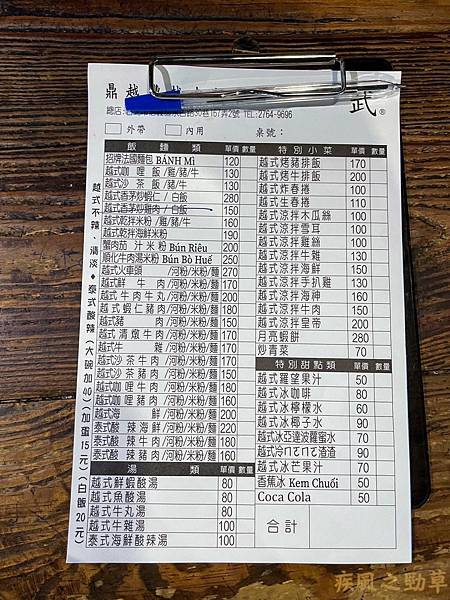 鼎越
武®
TEL:2764-9696
外帶 內用 桌號：
飯麵類 單價 數量
招牌法國麵包 BÁNH Mì 120
越式咖哩飯/雞/豬/牛 130
越式沙茶飯/豬/牛 130
越式香茅炒蝦仁/白飯 280
越式香茅炒雞肉/白飯 150
越式乾拌米粉/雞/豬/牛 160
越式乾拌海鮮米粉 190
蟹肉茄汁米粉 Bún Riêu 200
順化牛肉湯米粉 Bún Bò Huế 190
越式火車頭/河粉/米粉/麵 270
越式鮮牛肉/河粉/米粉/麵 170
越式牛肉牛丸/河粉/米粉/麵 200
越式蝦仁豬肉/河粉/米粉/麵 180
越式豬肉/河粉/米粉/麵 150
越式清燉牛肉/河粉/米粉/麵 170
越式牛雜/河粉/米粉/麵 170
越式沙茶牛肉/河粉/米粉/麵 170
越式沙茶豬肉/河粉/米粉/麵 150
越式咖哩牛肉/河粉/米粉/麵 180
越式咖哩豬肉/河粉/米粉/麵 160
越式海鮮/河粉/米粉/麵 200
泰式酸辣海鮮/河粉/米粉/麵 220
泰式酸辣牛肉/河粉/米粉/麵 180
泰式酸辣豬肉/河粉/米粉/麵 160
湯類 單價 數量
越式鮮蝦酸湯 80
越式魚酸湯 80
越式牛丸湯 80
越式牛雜湯 100
泰式海鮮酸辣湯 100
特別小菜 單價 數量
越式烤豬排飯 170
越式烤牛排飯 200
越式炸春捲 100
越式生春捲 110
越式涼拌木瓜絲 100
越式涼拌雪耳 100
越式涼拌雞絲 100
越式涼拌牛雜 130
越式涼拌海鮮 150
越式涼拌手扒雞 130
越式涼拌海神 160
越式涼拌牛肉 150
越式涼拌皇帝 200
月亮蝦餅 280
炒青菜 70
特別甜點類 單價 數量
越式羅望果汁 50
越式冰咖啡 80
越式冰檸檬水 60
越式冰椰子水 90
越式冰亞達波羅蜜水 70
越式冷ㄇㄛㄇㄛ渣渣 90
越式冰芒果汁 70
香蕉冰 Kem Chuối 50
Coca Cola 50
合計
越式不辣、清淡◆泰式酸辣（大碗加40）（加蛋15元）（白飯20元）
疾風之勁草